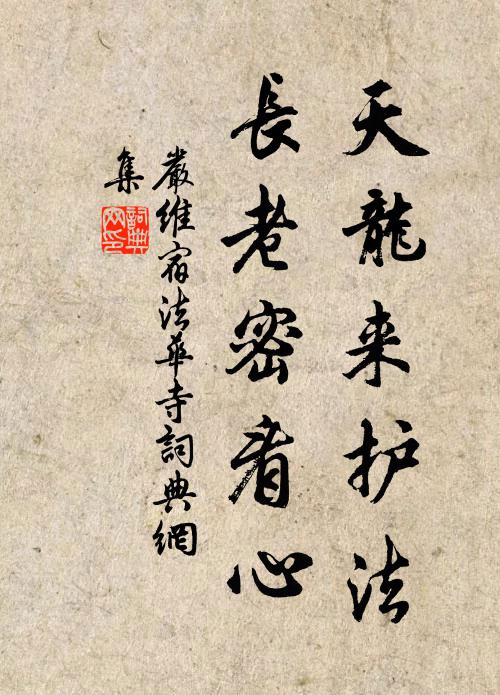 天龍来护法
長老密看心
嚴維宿法華寺詞典網
集
詞典網印